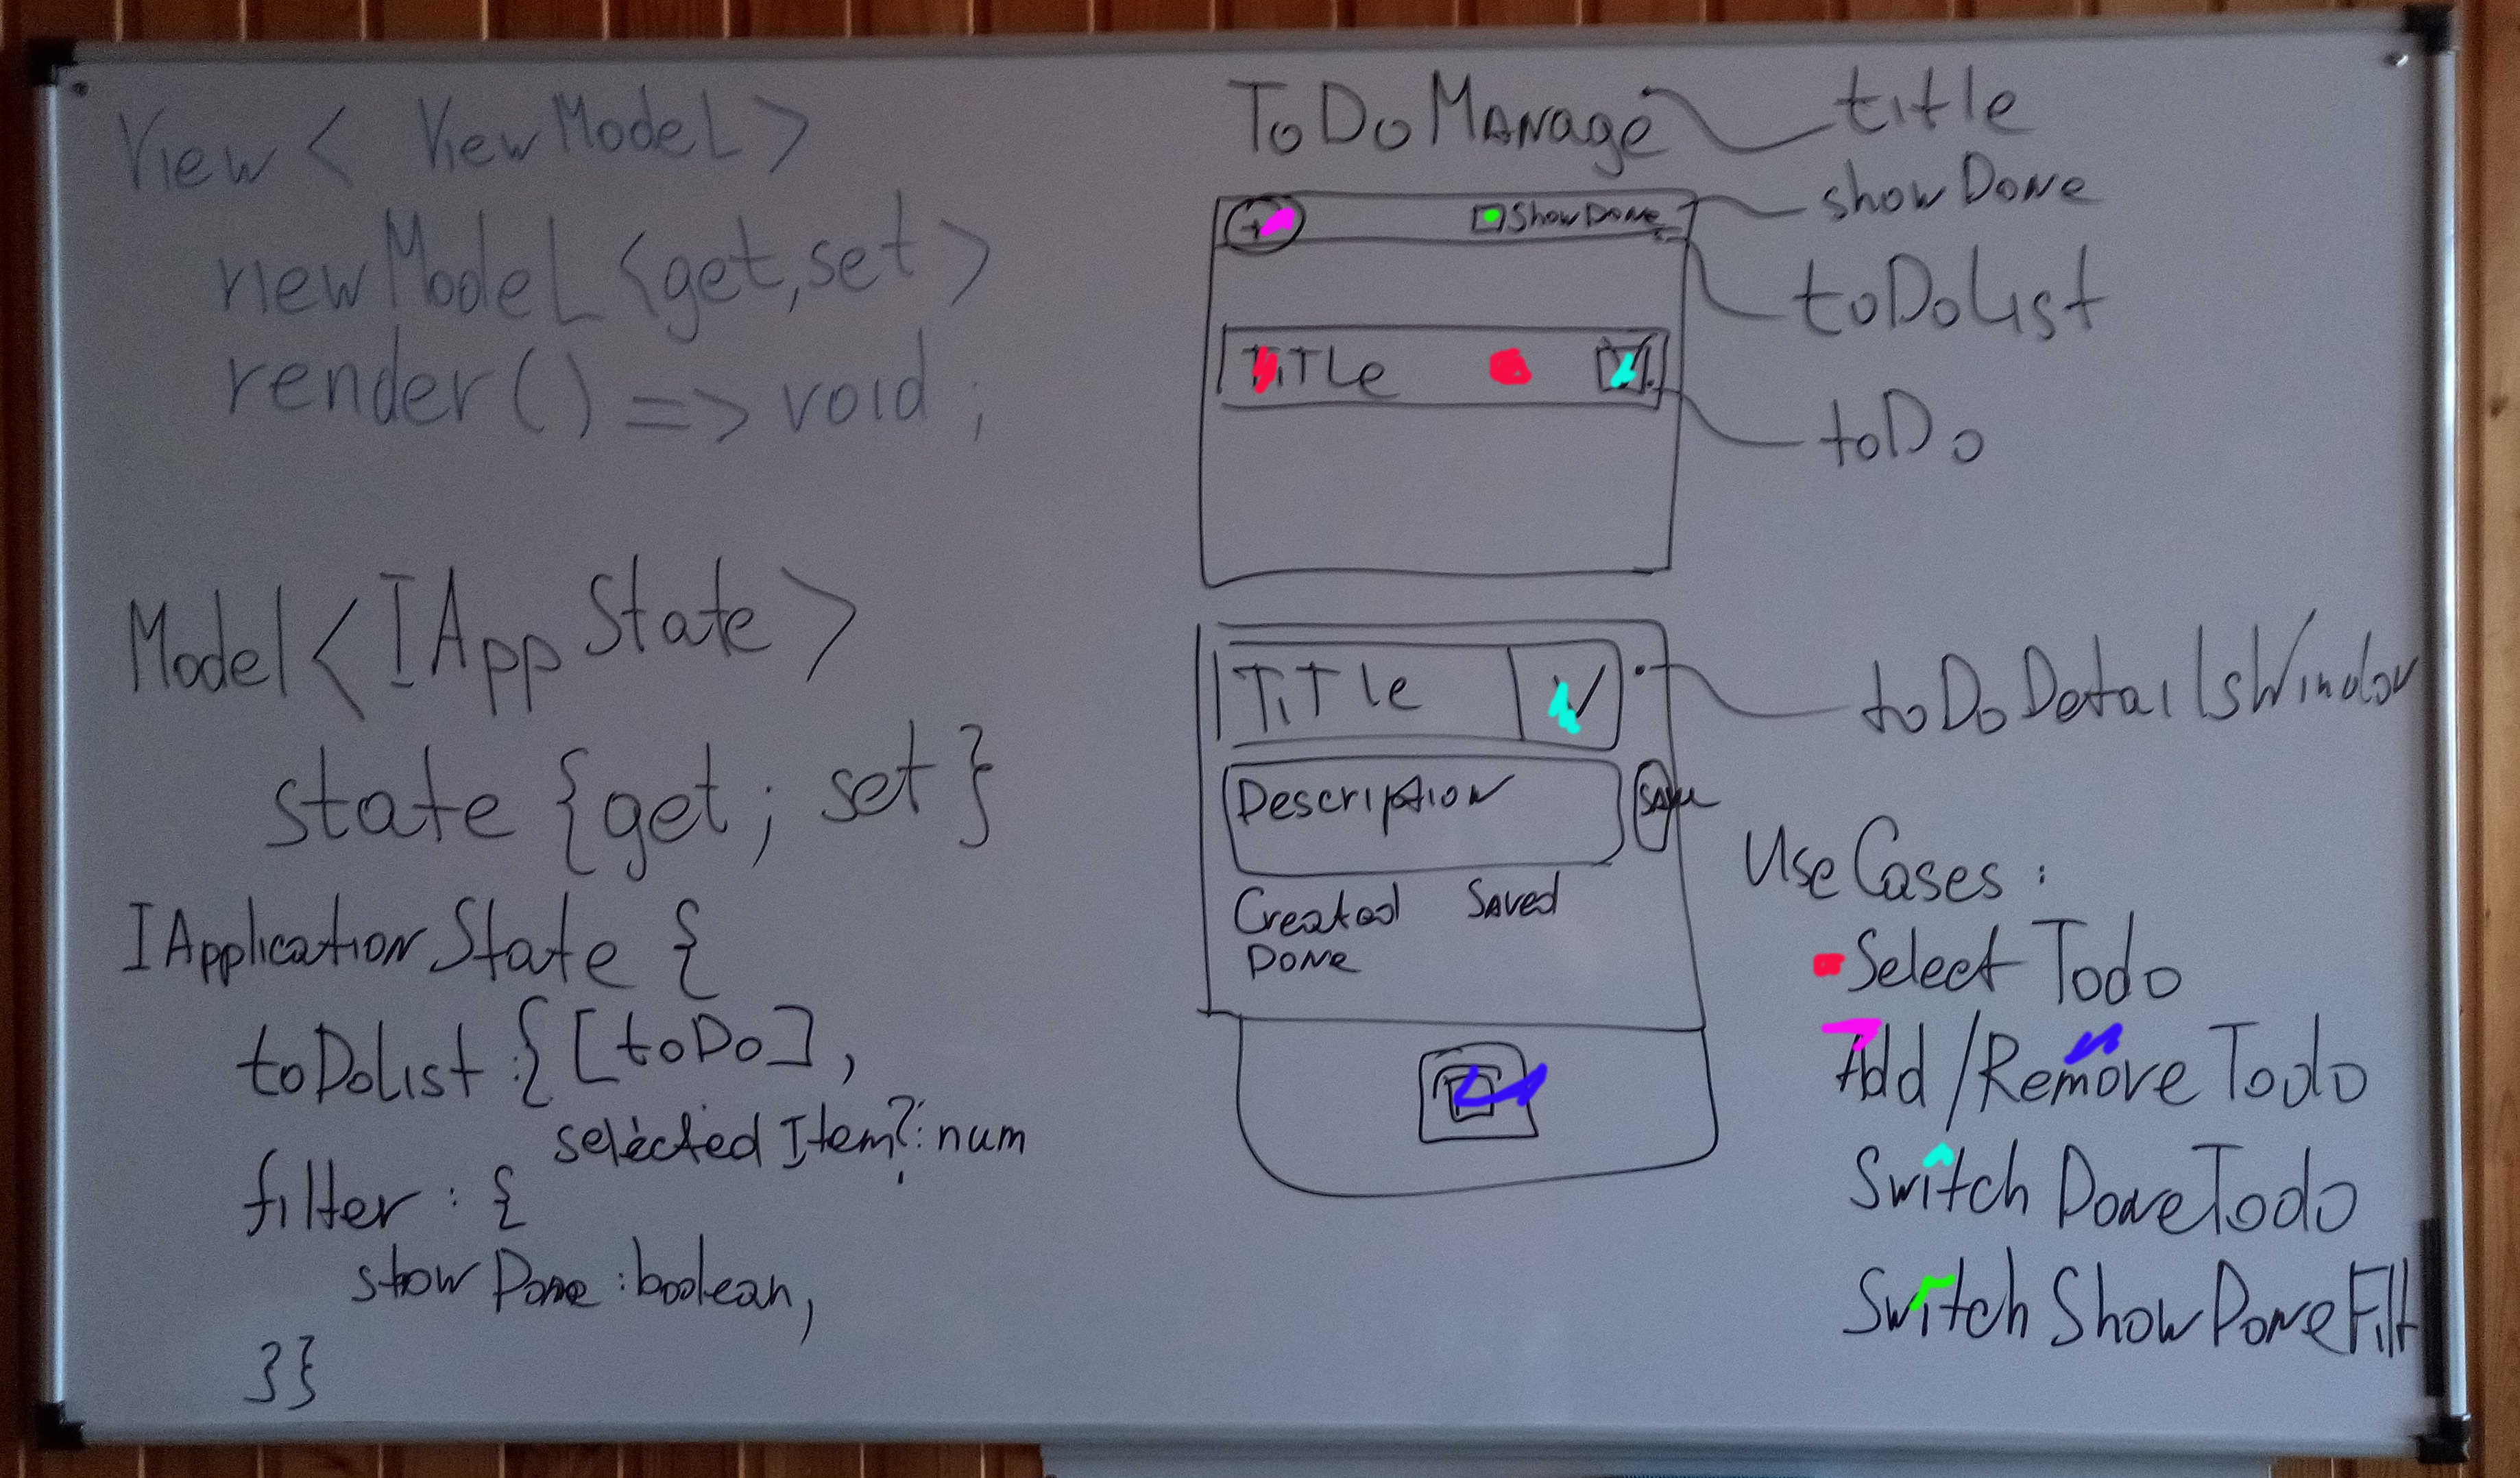 View < ViewModel >
viewModel <get, set>
render() => void ;
Model<IAppState>
state {get ; set}
IApplicationState {
toDoList :{ [toDo],
selectedItem?: num
filter : {
showDone : boolean,
}}
ToDoManage
title
+
ShowDone
showDone
toDoList
TiTLe
toDo
TiTle
toDoDetailsWindow
Description
Save
Created Saved
Done
UseCases :
- Select Todo
Add/Remove Todo
Switch DoneTodo
Switch ShowDoneFilt